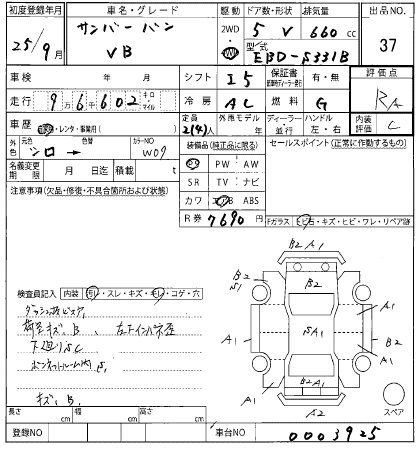 初度登録年月 車名・グレード 駆動 ドア数・形状 排気量 出品NO.
25/9月 サンバーバン VB 2WD 5 V 660cc 37
型式 EBD-S331B
車検 年 月 シフト I5 保証書 有・無 評価点
走行 9万6千602 キロ マイル 冷房 AC 燃料 G RA
車歴 ・レンタ・事業用( ) 定員 2(4)人 外車モデル 年 ディーラー 並行 ハンドル 左・右 内装評価 C
外色 元色 シロ → 色替 カラーNO W09
装備品(純正品に限る) セールスポイント(正常に作動するもの)
名義変更期限 月 日迄 積載 t
PS PW AW
SR TV ナビ
カワ エアB ABS
R券 7690円
注意事項(欠品・修復・不具合箇所および状態)
Fガラス ヒビ石・キズ・ヒビ・ワレ・リペア跡
検査員記入 内装 汚レ・スレ・キズ・キレ・コゲ・穴
キズ、B、
下廻りSC
ボンネットルーム内S1
キズ、B、
B2 A1
B2 S1
B2
A1
A1
SA1
B2
A1
A1
B2A1
A1
A2
スペア
長さ cm 幅 cm 高さ cm
登録NO 車台NO 0003925